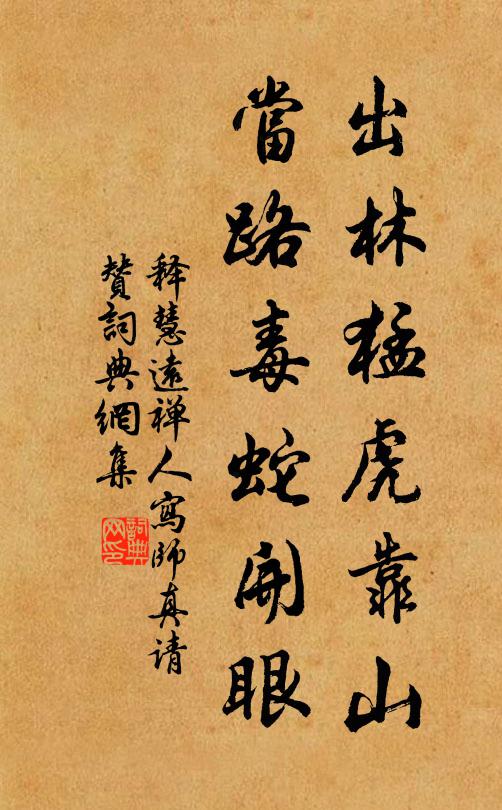 出林猛虎靠山
當路毒蛇開眼
释慧遠禅人寫師真请
赞詞典網集
詞典网印